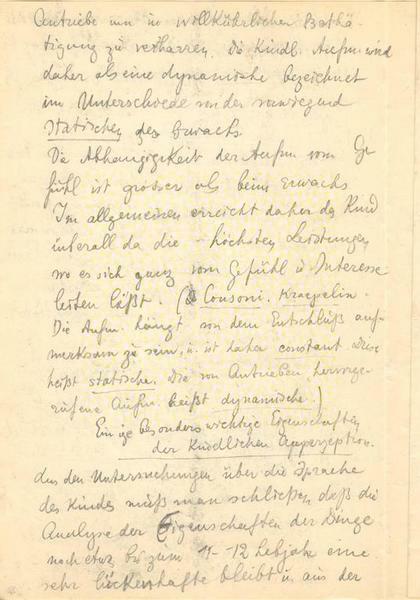 Antriebe um in willkührlicher Bethä-
tigung zu verharren. Die Kindl. Aufm wird
daher als eine dynamische bezeichnet
im Unterschiede von der vorwiegend
statischen des Erwachs
Die Abhängigkeit der Aufm vom Ge
fühl ist grösser als beim Erwachs
Im allgemeinen erreicht daher das Kind
überall da die höchsten Leistungen
wo es sich ganz vom Gefühl u Interesse
leiten läßt. (Consoni, Kraepelin.
Die Aufm. hängt von dem Entschluß auf-
merksam zu sein, u. ist daher constant Diese
heißt statische, die von Antrieben hervorge-
rufene Aufm heißt dynamische.)
Einige besonders wichtige Eigenschaften
der Kindlichen Apperzeption.
Aus den Untersuchungen über die Sprache
des Kindes muß man schließen daß die
Analyse der Eigenschaften der Dinge
noch etwa bis zum 11-12 Lebjahr eine
sehr lückenhafte bleibt u aus der